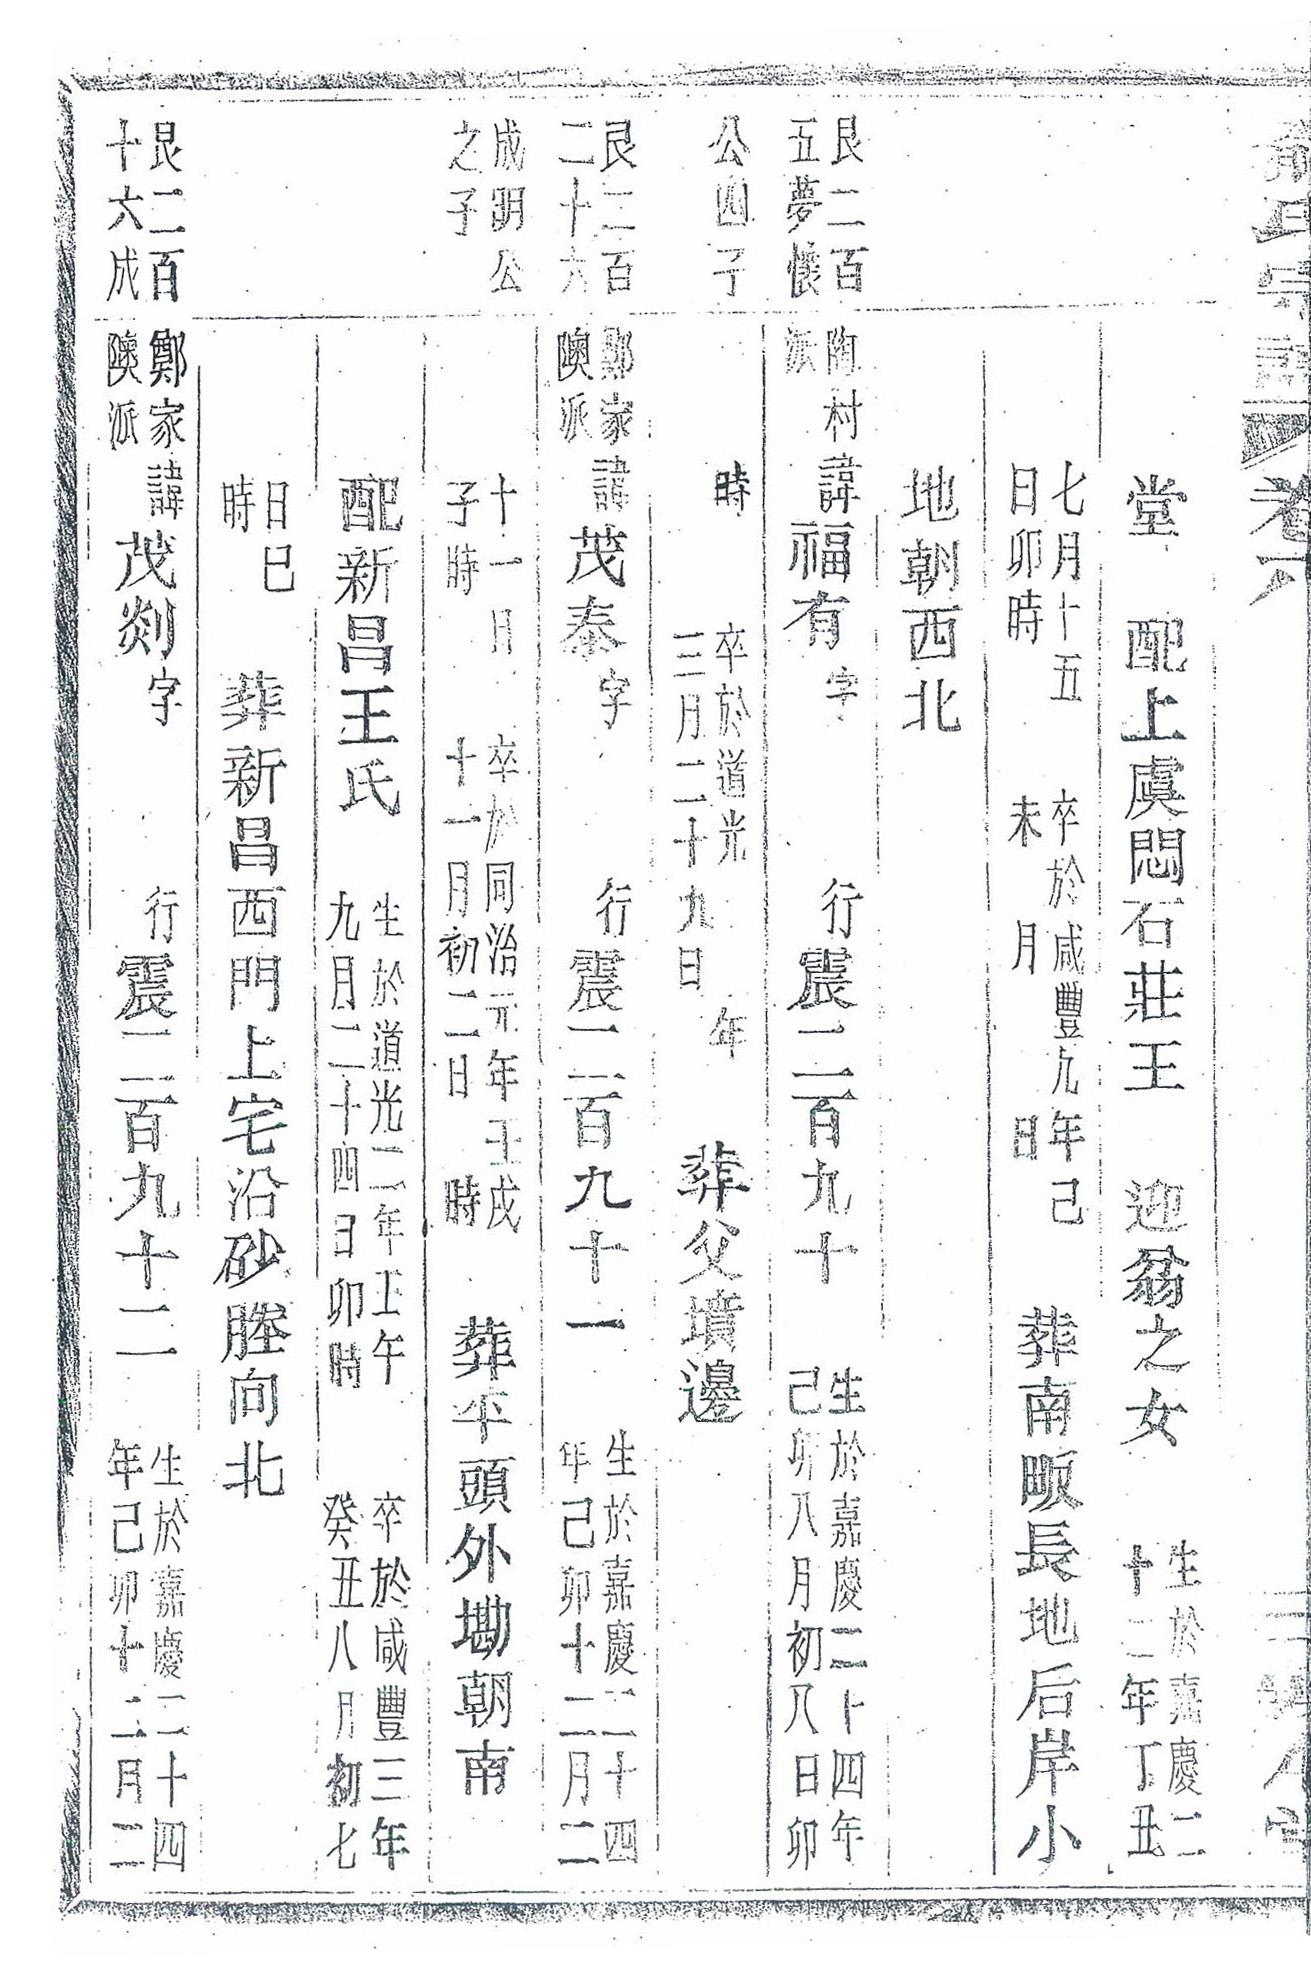 氏宗譜 卷六
堂 配上虞悶石莊王 迎翁之女 生於嘉慶二十二年丁丑
七月十五日卯時 卒於咸豐九年己未 月 日 葬南畈長地后岸小
地朝西北
艮二百五夢懷 陶村派 諱福有字 行震二百九十 生於嘉慶二十四年己卯八月初八日卯
公四子 時 卒於道光 年三月二十九日 葬父墳邊
艮二百二十六 鄭家隩派 諱茂泰字 行震二百九十一 生於嘉慶二十四年己卯十二月二
成明公之子 十一日子時 卒於同治元年壬戌十一月初二日 時 葬平頭外墈朝南
配新昌王氏 生於道光二年壬午九月二十四日卯時 卒於咸豐三年癸丑八月初七
日巳時 葬新昌西門上宅沿砂塍向北
艮二百十六成 鄭家隩派 諱茂剡字 行震二百九十二 生於嘉慶二十四年己卯十二月二